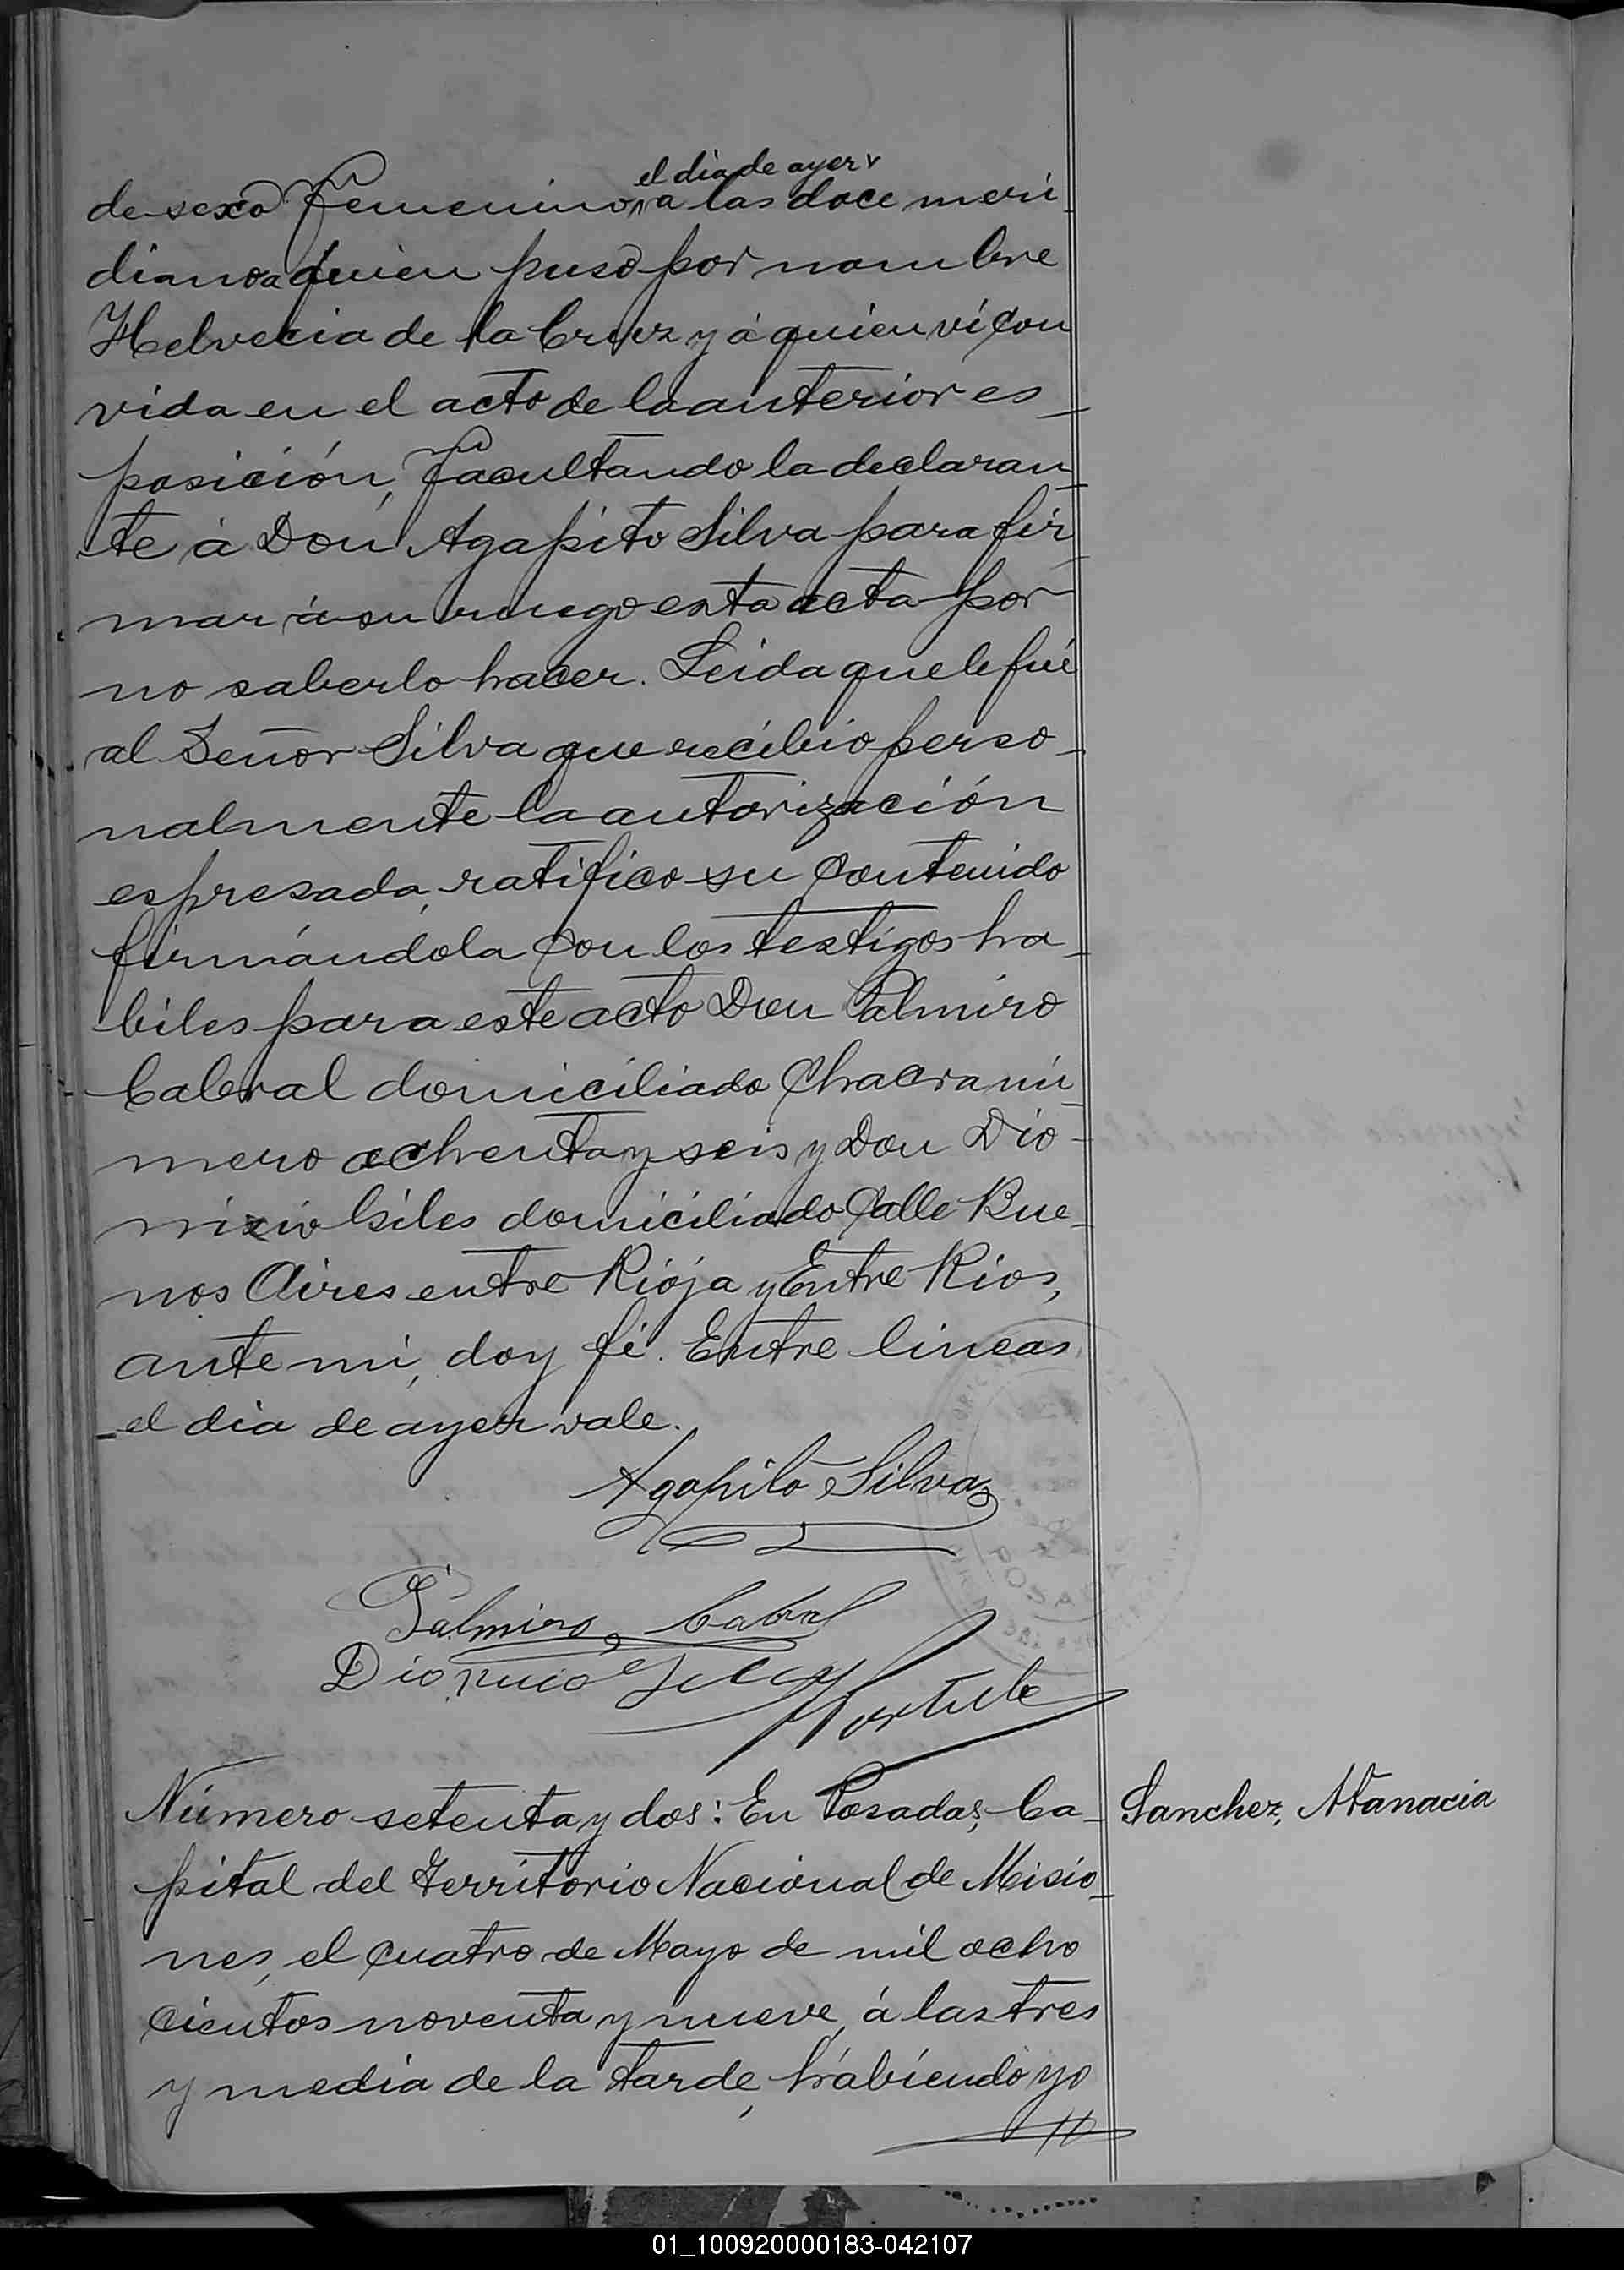 el dia de ayer
de sexo femenino a las doce meri
diano a quien puso por nombre
Helvecia de la Cruz y á quien ví con
vida en el acto de la anterior es-
posición, facultando la declaran-
te á Don Agapito Silva para fir-
mar á su ruego esta acta por
no saberlo hacer. Leida que le fué
al Señor Silva que recibio perso-
nalmente la autorización
espresada, ratifico su contenido
firmándola con los testigos ha-
biles para este acto Don Palmiro
Cabral domiciliado Chacra nú-
mero ochenta y seis y Don Dio-
nisio Giles domiciliado Calle Bue-
nos Aires entre Rioja y Entre Rios,
ante mi, doy fé. Entre lineas
el dia de ayer vale.
Agapito Silva
Palmiro Cabral
Dionicio
Número setenta y dos: En Posadas, Ca-
Sanchez, Atanacia
pital del Territorio Nacional de Misio-
nes, el cuatro de Mayo de mil ocho
cientos noventa y nueve, á las tres
y media de la tarde, habiendo yo
01_100920000183-042107